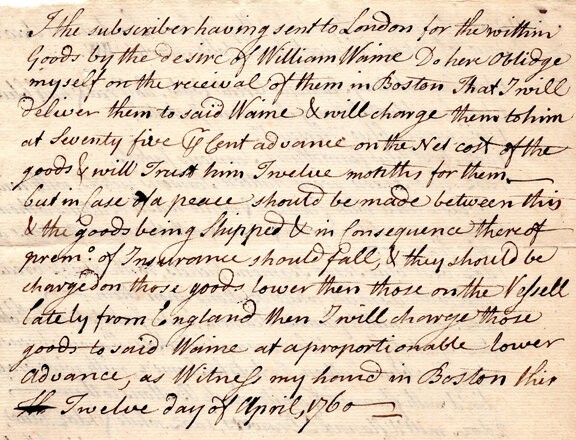 I the subscriber having sent to London for the within
Goods by the desire of William Waine Do here Oblidge
myself on the receival of them in Boston That I will
deliver them to said Waine & will charge them to him
at Seventy five ⅌ Cent advance on the Net cost of the
goods & will Trust him Twelve months for them
but in Case of a peace should be made between this
& the goods being Shipped & in Consequence thereof
prem.o of Insurance should fall, & they should be
charged on those goods lower then those on the Vessell
lately from England then I will charge those
goods to said Waine at a proportionable lower
advance, as Witness my hand in Boston this
Twelve day of April, 1760